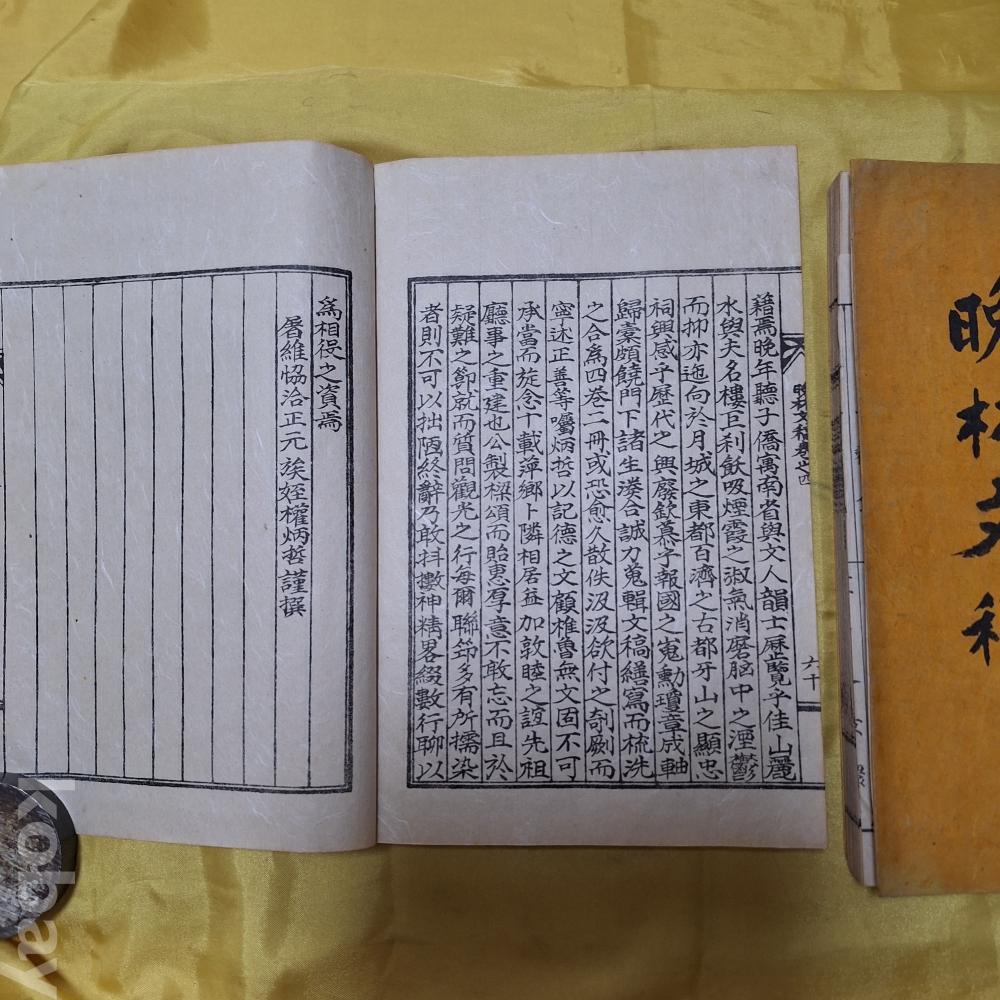 藉焉晚年聽子僑寓南省與文人韻士歷覽乎佳山麗
水與夫名樓巨刹飮吸煙霞之淑氣消磨脳中之湮鬱
而抑亦迤向於月城之東都百濟之古都牙山之顯忠
祠興感乎歷代之興廢欽慕乎報國之嵬勳瓊章成軸
歸橐頗饒門下諸生湊合誠力蒐輯文稿繕寫而梳洗
之合爲四卷二冊或恐愈久散佚汲汲欲付之剞劂而
寗述正善等囑炳哲以記德之文顧椎魯無文固不可
承當而旋念十載萍鄉卜隣相居益加敦睦之誼先祖
廳事之重建也公製樑頌而貽惠厚意不敢忘而且於
疑難之節就而質問觀光之行每爾聯筇多有所擩染
者則不可以拙陋終辭乃敢抖擻神精畧綴數行聊以
晚松文稿卷之四
六十
爲相役之資焉
屠維恊洽正元 族姪權炳哲謹撰
晚松文稿
kobay